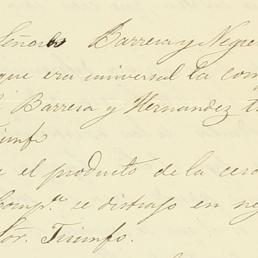 Señores Barrera y Negre
que era universal la com
Barrera y Hernandez t
iunfo
e el producto de la cer
Comp.ª se distrajo en ne
tor. Triunfo.